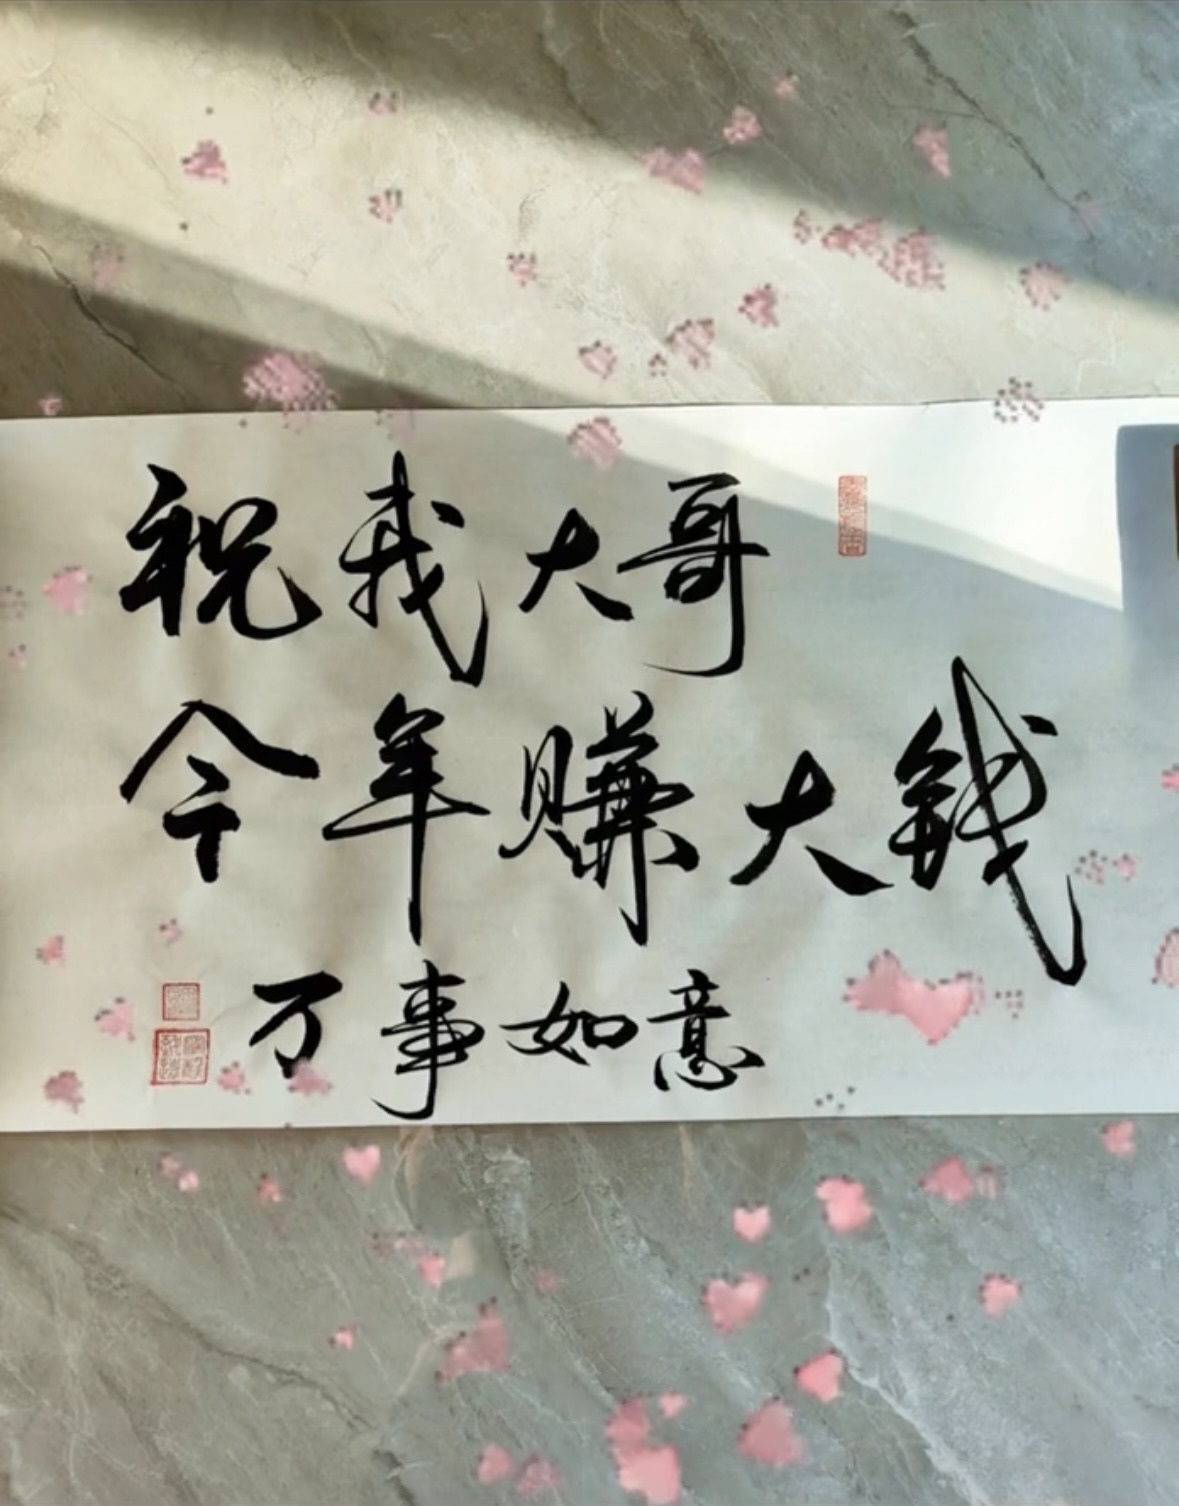 祝我大哥
今年赚大钱
万事如意